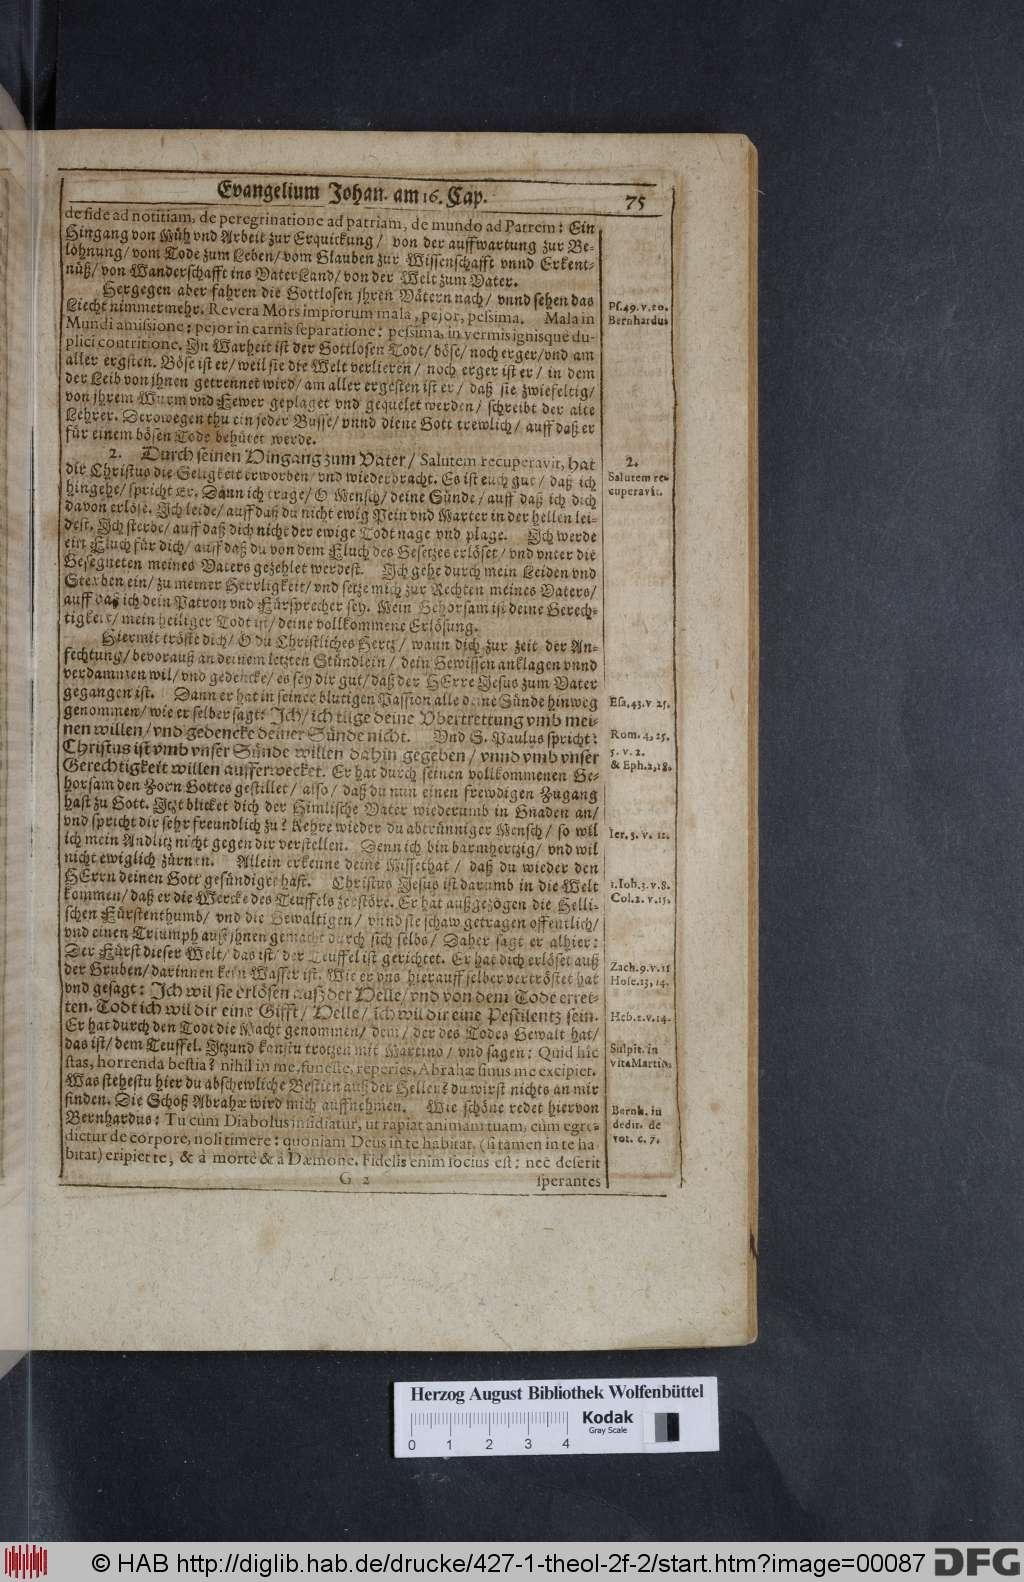 Evangelium Johan. am 16. Cap. 75
de fide ad notitiam, de peregrinatione ad patriam, de mundo ad Patrem: Ein
Hingang von Müh vnd Arbeit zur Erquickung/ von der auffwartung zur Be-
lohnung/ vom Tode zum Leben/ vom Glauben zur Wissenschafft vnnd Erkent-
nüß/ von Wanderschafft ins VaterLand/ von der Welt zum Vater.
Hergegen aber fahren die Gottlosen jhren Vätern nach/ vnnd sehen das
Liecht nimmermehr. Revera Mors impiorum mala, pejor, pessima. Mala in
Mundi amissione: pejor in carnis separatione: pessima, in vermis ignisque du-
plici contritione. In Warheit ist der Gottlosen Todt/ böse/ noch erger/ vnd am
aller ergsten. Böse ist er/ weil sie die Welt verlieren/ noch erger ist er/ in dem
der Leib von jhnen getrennet wird/ am aller ergesten ist er/ daß sie zwiefeltig/
von jhrem Wurm vnd Fewer geplaget vnd gequelet werden/ schreibt der alte
Lehrer. Derowegen thu ein jeder Busse/ vnnd diene Gott trewlich/ auff daß er
für einem bösen Tode behütet werde.
2. Durch seinen Hingang zum Vater/ Salutem recuperavit, hat
dir Christus die Seligkeit erworben/ vnd wiederbracht. Es ist euch gut/ daß ich
hingehe/ spricht Er. Dann ich trage/ O Mensch/ deine Sünde/ auff daß ich dich
davon erlöse. Ich leide/ auff daß du nicht ewig Pein vnd Marter in der hellen lei-
dest. Ich sterbe/ auff daß dich nicht der ewige Todt nage vnd plage. Ich werde
ein Fluch für dich/ auff daß du von dem Fluch des Gesetzes erlöset/ vnd vnter die
Gesegneten meines Vaters gezehlet werdest. Ich gehe durch mein Leiden vnd
Sterben ein/ zu meiner Herrligkeit/ vnd setze mich zur Rechten meines Vaters/
auff daß ich dein Patron vnd Fürsprecher sey. Mein Gehorsam ist deine Gerech-
tigkeit/ mein heiliger Todt ist/ deine vollkommene Erlösung.
Hiermit tröste dich/ O du Christliches Hertz/ wann dich zur zeit der An-
fechtung/ bevorauß an deinem letzten Stündlein/ dein Gewissen anklagen vnnd
verdammen wil/ vnd gedencke/ es sey dir gut/ daß der HErre Jesus zum Vater
gegangen ist. Dann er hat in seiner blutigen Passion alle deine Sünde hinweg
genommen/ wie er selber sagt: Ich/ ich tilge deine Vbertrettung vmb mei-
nen willen/ vnd gedencke deiner Sünde nicht. Vnd S. Paulus spricht:
Christus ist vmb vnser Sünde willen dahin gegeben/ vnnd vmb vnser
Gerechtigkeit willen aufferwecket. Er hat durch seinen vollkommenen Ge-
horsam den Zorn Gottes gestillet/ also/ daß du nun einen frewdigen Zugang
hast zu Gott. Jtzt blicket dich der Himlische Vater wiederumb in Gnaden an/
vnd spricht dir sehr freundlich zu: Kehre wieder du abtrünniger Mensch/ so wil
ich mein Andlitz nicht gegen dir verstellen. Denn ich bin barmhertzig/ vnd wil
nicht ewiglich zürnen. Allein erkenne deine Missethat/ daß du wieder den
HErrn deinen Gott gesündiget hast. Christus Jesus ist darumb in die Welt
kommen/ daß er die Wercke des Teuffels zerstöre. Er hat außgezogen die Helli-
schen Fürstenthumb/ vnd die Gewaltigen/ vnnd sie schaw getragen offentlich/
vnd einen Triumph auß jhnen gemacht durch sich selbs/ Daher sagt er alhier:
Der Fürst dieser Welt/ das ist/ der Teuffel ist gerichtet. Er hat dich erlöset auß
der Gruben/ darinnen kein Wasser ist. Wie er vns hierauff selber vertröstet hat
vnd gesagt: Ich wil sie erlösen auß der Helle/ vnd von dem Tode erret-
ten. Todt ich wil dir eine Gifft/ Helle/ ich wil dir eine Pestilentz sein.
Er hat durch den Todt die Macht genommen/ dem/ der des Todes Gewalt hat/
das ist/ dem Teuffel. Jtzund kanstu trotzen mit Martino/ vnd sagen: Quid hîc
stas, horrenda bestia? nihil in me, funeste, reperies, Abrahæ sinus me excipiet.
Was stehestu hier du abschewliche Bestien auß der Hellen? du wirst nichts an mir
finden. Die Schoß Abrahæ wird mich auffnehmen. Wie schöne redet hiervon
Bernhardus: Tu cum Diabolus insidiatur, ut rapiat animam tuam, cùm egre-
dictur de corpore, noli timere: quoniam Deus in te habitat, (si tamen in te ha-
bitat) eripiet te, & à morte & à Dæmone. Fidelis enim socius est: nec deserit
G 2 sperantes
Ps. 49. v. 20.
Bernhardus
2.
Salutem re-
cuperavit.
Esa. 43. v. 25.
Rom. 4, 25.
5. v. 2.
& Eph. 2, 18.
Ier. 3. v. 12.
1. Ioh. 3. v. 8.
Col. 2. v. 15.
Zach. 9. v. 11
Hose. 13, 14.
Heb. 2. v. 14.
Sulpit. in
vita Martin.
Bernh. in
dedic. de
vot. c. 7.
Herzog August Bibliothek Wolfenbüttel
Kodak
Gray Scale
0 1 2 3 4
© HAB http://diglib.hab.de/drucke/427-1-theol-2f-2/start.htm?image=00087
DFG